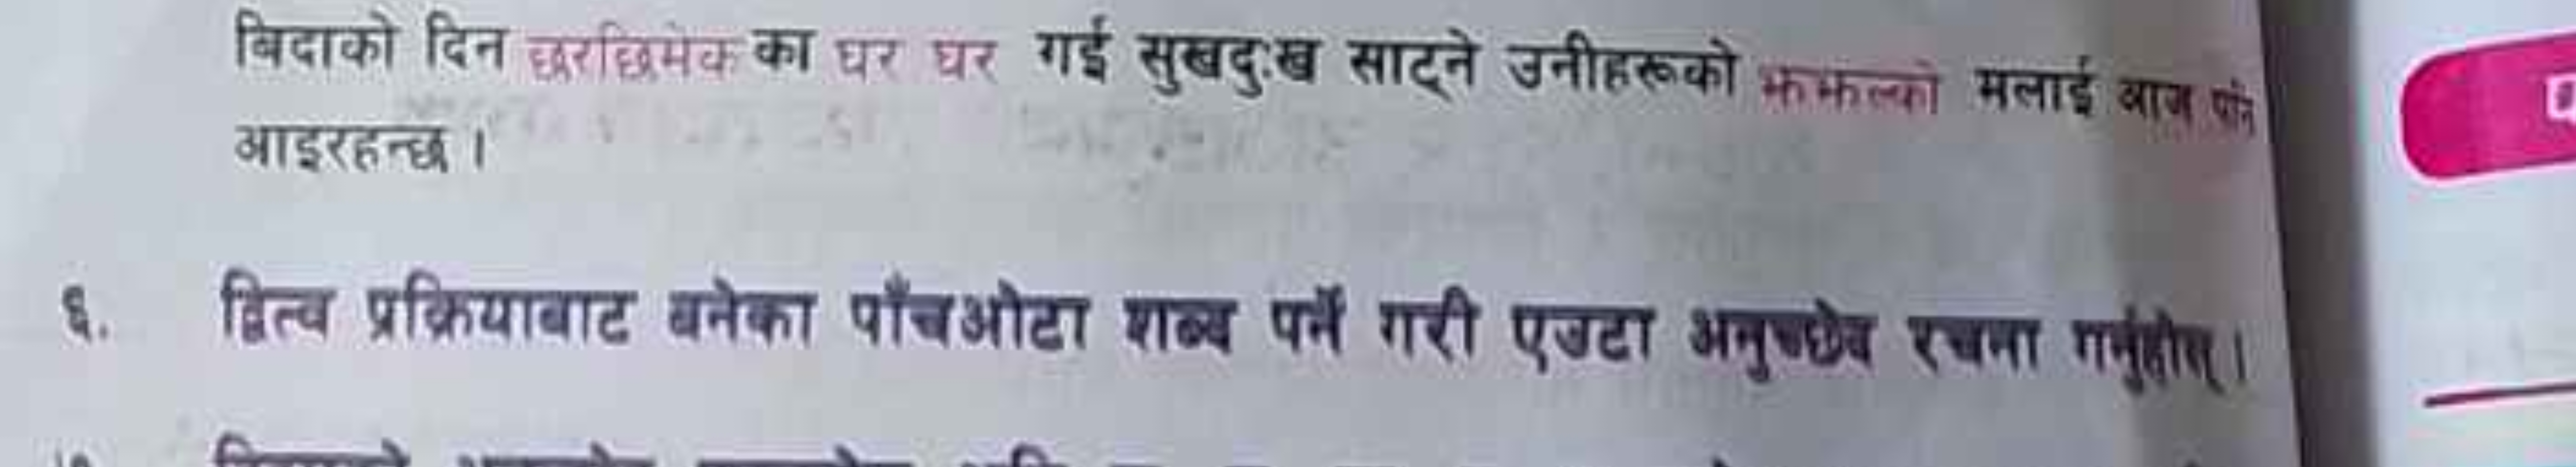 बिदाको दिन छरछिमेक का घर घर गई सुखदुःख साट्ने उनीहरूको झझल्को मलाई आज पनि
आइरहन्छ ।
६. द्वित्व प्रक्रियाबाट बनेका पाँचओटा शब्द पर्ने गरी एउटा अनुच्छेद रचना गर्नुहोस् ।